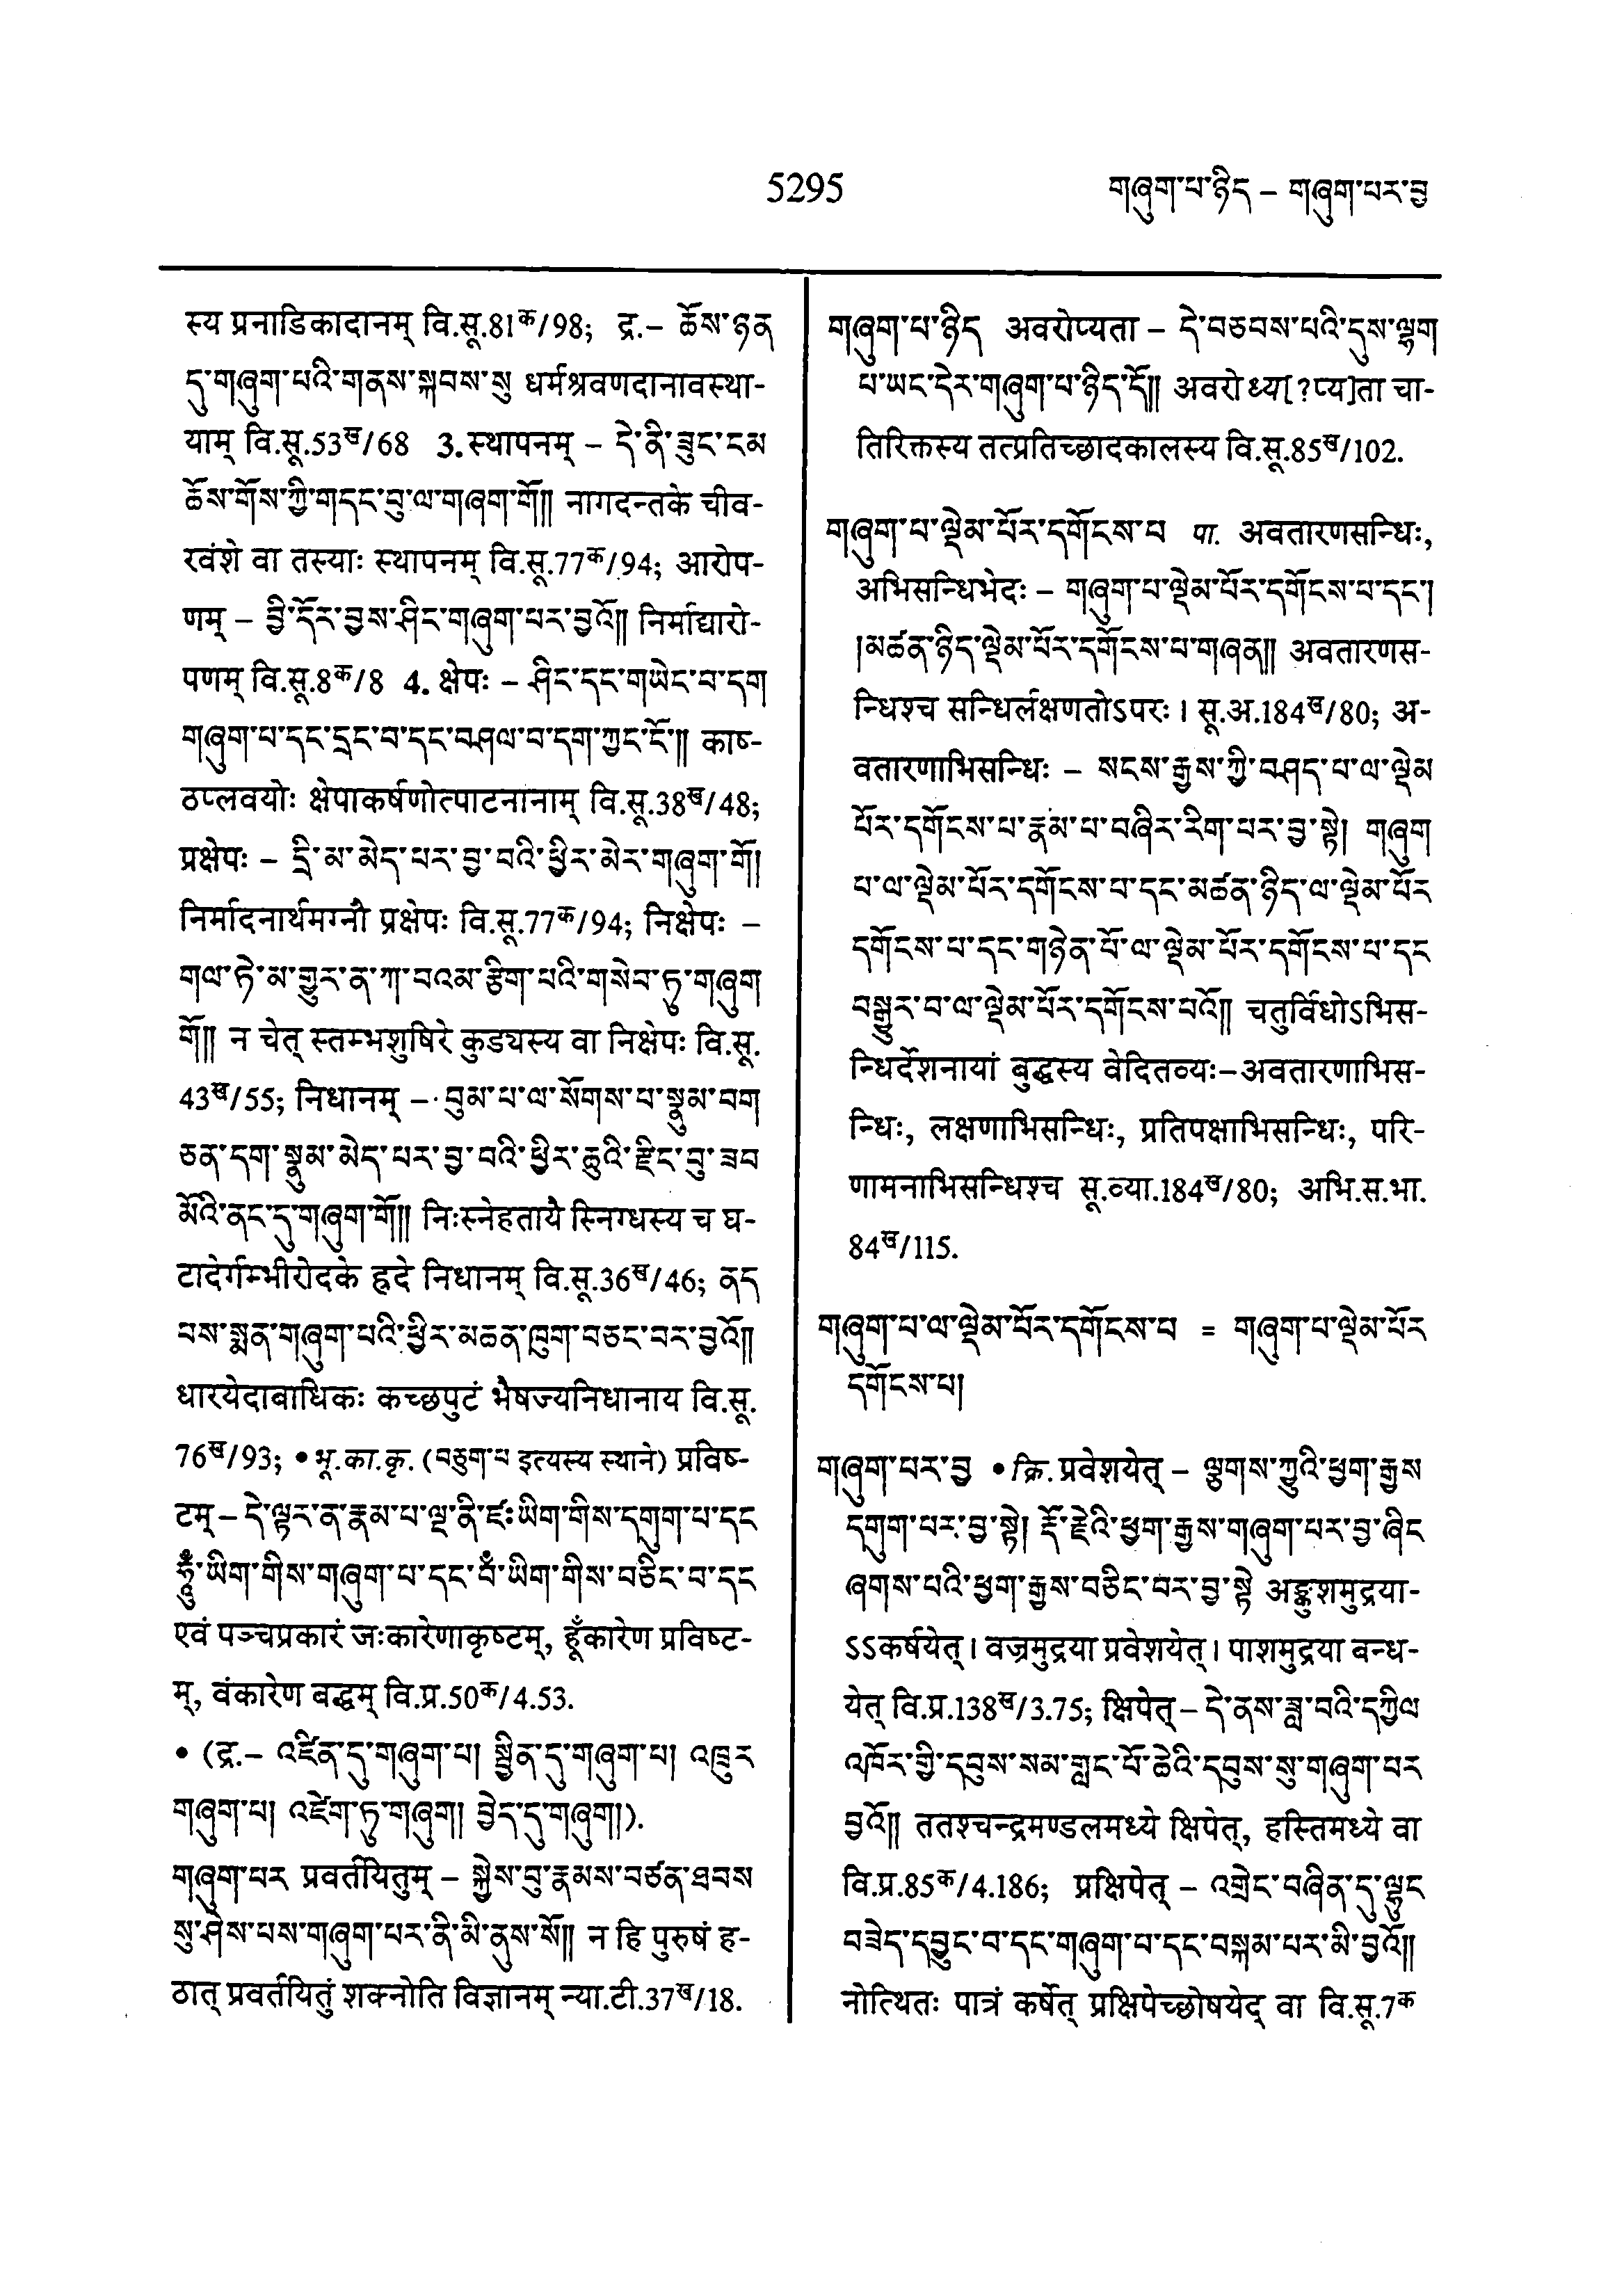 5295
གཞུག་པ་ཉིད – གཞུག་པར་བྱ
स्य प्रनाडिकादानम् वि.सू.81क/98; द्र.– ཆོས་ཉན
དུ་གཞུག་པའི་གནས་སྐབས་སུ धर्मश्रवणदानावस्था-
याम् वि.सू.53ख/68 3. स्थापनम् – དེ་ནི་ཟུང་ངམ
ཆོས་གོས་ཀྱི་གདང་བུ་ལ་གཞག་གོ།། नागदन्तके चीव-
रवंशे वा तस्याः स्थापनम् वि.सू.77क/94; आरोप-
णम् – བྱི་དོར་བྱས་ཤིང་གཞུག་པར་བྱའོ།། निर्माद्यारो-
पणम् वि.सू.8क/8 4. क्षेपः – ཤིང་དང་གཡེང་བ་དག
གཞུག་པ་དང་དྲང་བ་དང་བཤལ་བ་དག་ཀྱང་ངོ་།། काष-
ठप्लवयोः क्षेपाकर्षणोत्पाटनानाम् वि.सू.38ख/48;
प्रक्षेपः – དྲི་མ་མེད་པར་བྱ་བའི་ཕྱིར་མེར་གཞུག་གོ།
निर्मादनार्थमग्नौ प्रक्षेपः वि.सू.77क/94; निक्षेपः –
གལ་ཏེ་མ་གྱུར་ན་ཀ་བའམ་རྩིག་པའི་གསེབ་ཏུ་གཞུག
གོ།། न चेत् स्तम्भशुषिरे कुड्यस्य वा निक्षेपः वि.सू.
43ख/55; निधानम् – བུམ་པ་ལ་སོགས་པ་སྣུམ་བག
ཅན་དག་སྣུམ་མེད་པར་བྱ་བའི་ཕྱིར་ཆུའི་རྫིང་བུ་ཟབ
མོའི་ནང་དུ་གཞུག་གོ།། निःस्नेहतायै स्निग्धस्य च घ-
टादेर्गम्भीरोदके ह्रदे निधानम् वि.सू.36ख/46; ནད
པས་སྨན་གཞུག་པའི་ཕྱིར་མཆན་ཁུག་བཅང་བར་བྱའོ།།
धारयेदाबाधिकः कच्छपुटं भैषज्यनिधानाय वि.सू.
76ख/93; • भू.का.कृ. (བཅུག་པ इत्यस्य स्थाने) प्रविष-
टम् – དེ་ལྟར་ན་རྣམ་པ་ལྔ་ནི་ཛཿཡིག་གིས་དགུག་པ་དང
ཧཱུྃ་ཡིག་གིས་གཞུག་པ་དང་བཾ་ཡིག་གིས་བཅིང་བ་དང
एवं पञ्चप्रकारं जःकारेणाकृष्टम्, हूँकारेण प्रविष्ट-
म्, वंकारेण बद्धम् वि.प्र.50क/4.53.
• (द्र.– འཛིན་དུ་གཞུག་པ། སྦྱིན་དུ་གཞུག་པ། འཁུར
གཞུག་པ། འཛེག་ཏུ་གཞུག། བྱེད་དུ་གཞུག།).
གཞུག་པར प्रवर्तयितुम् – སྐྱེས་བུ་རྣམས་བཙན་ཐབས
སུ་ཤེས་པས་གཞུག་པར་ནི་མི་ནུས་སོ།། न हि पुरुषं ह-
ठात् प्रवर्तयितुं शक्नोति विज्ञानम् न्या.टी.37ख/18.
གཞུག་པ་ཉིད अवरोप्यता – དེ་བཅབས་པའི་དུས་ལྷག
པ་ཡང་དེར་གཞུག་པ་ཉིད་དོ།། अवरोध्य[?प्य]ता चा-
तिरिक्तस्य तत्प्रतिच्छादकालस्य वि.सू.85ख/102.
གཞུག་པ་ལྡེམ་པོར་དགོངས་པ पा. अवतारणसन्धिः,
अभिसन्धिभेदः – གཞུག་པ་ལྡེམ་པོར་དགོངས་པ་དང་།
།མཚན་ཉིད་ལྡེམ་པོར་དགོངས་པ་གཞན།། अवतारणस-
न्धिश्च सन्धिर्लक्षणतोऽपरः। सू.अ.184ख/80; अ-
वतारणाभिसन्धिः – སངས་རྒྱས་ཀྱི་བཤད་པ་ལ་ལྡེམ
པོར་དགོངས་པ་རྣམ་པ་བཞིར་རིག་པར་བྱ་སྟེ། གཞུག
པ་ལ་ལྡེམ་པོར་དགོངས་པ་དང་མཚན་ཉིད་ལ་ལྡེམ་པོར
དགོངས་པ་དང་གཉེན་པོ་ལ་ལྡེམ་པོར་དགོངས་པ་དང
བསྒྱུར་བ་ལ་ལྡེམ་པོར་དགོངས་པའོ།། चतुर्विधोऽभिस-
न्धिर्देशनायां बुद्धस्य वेदितव्यः–अवतारणाभिस-
न्धिः, लक्षणाभिसन्धिः, प्रतिपक्षाभिसन्धिः, परि-
णामनाभिसन्धिश्च सू.व्या.184ख/80; अभि.स.भा.
84ख/115.
གཞུག་པ་ལ་ལྡེམ་པོར་དགོངས་པ = གཞུག་པ་ལྡེམ་པོར
དགོངས་པ།
གཞུག་པར་བྱ • क्रि. प्रवेशयेत् – ལྕགས་ཀྱུའི་ཕྱག་རྒྱས
དགུག་པར་བྱ་སྟེ། རྡོ་རྗེའི་ཕྱག་རྒྱས་གཞུག་པར་བྱ་ཞིང
ཞགས་པའི་ཕྱག་རྒྱས་བཅིང་བར་བྱ་སྟེ अङ्कुशमुद्रया-
ऽऽकर्षयेत्। वज्रमुद्रया प्रवेशयेत्। पाशमुद्रया बन्ध-
येत् वि.प्र.138ख/3.75; क्षिपेत् – དེ་ནས་ཟླ་བའི་དཀྱིལ
འཁོར་གྱི་དབུས་སམ་གླང་པོ་ཆེའི་དབུས་སུ་གཞུག་པར
བྱའོ།། ततश्चन्द्रमण्डलमध्ये क्षिपेत्, हस्तिमध्ये वा
वि.प्र.85क/4.186; प्रक्षिपेत् – འགྲེང་བཞིན་དུ་ལྷུང
བཟེད་དབྱུང་བ་དང་གཞུག་པ་དང་བསྐམ་པར་མི་བྱའོ།།
नोत्थितः पात्रं कर्षेत् प्रक्षिपेच्छोषयेद् वा वि.सू.7क